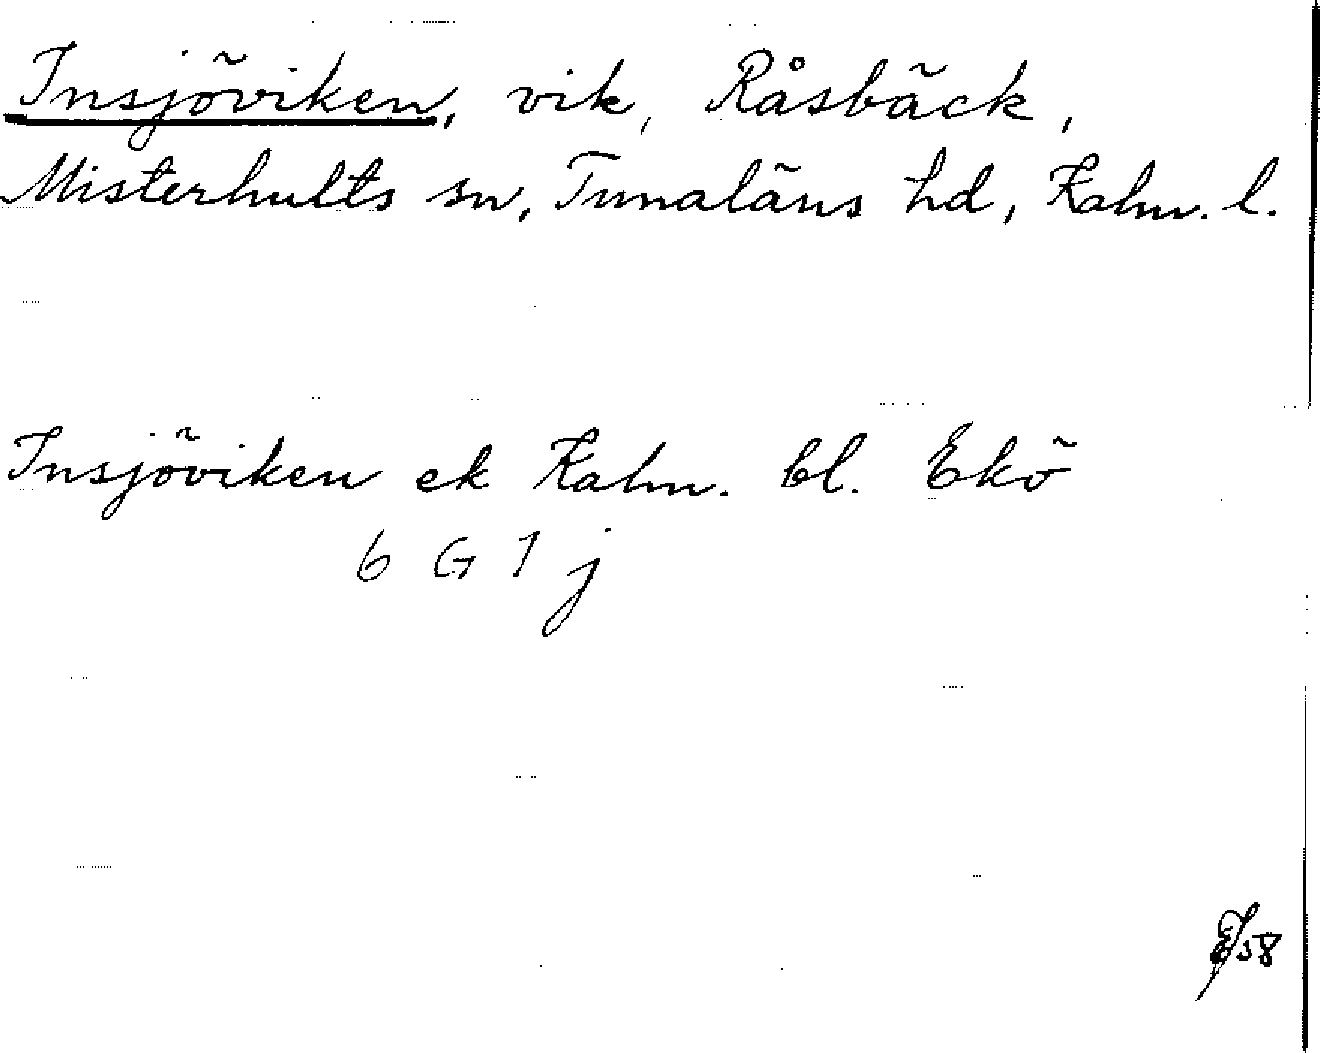 Insjöviken, vik, Råsbäck,
Misterhults sn, Tunaläns hd, Kalm. l.
Insjöviken ek Kalm. bl. Ekö
6 G 1 j
58